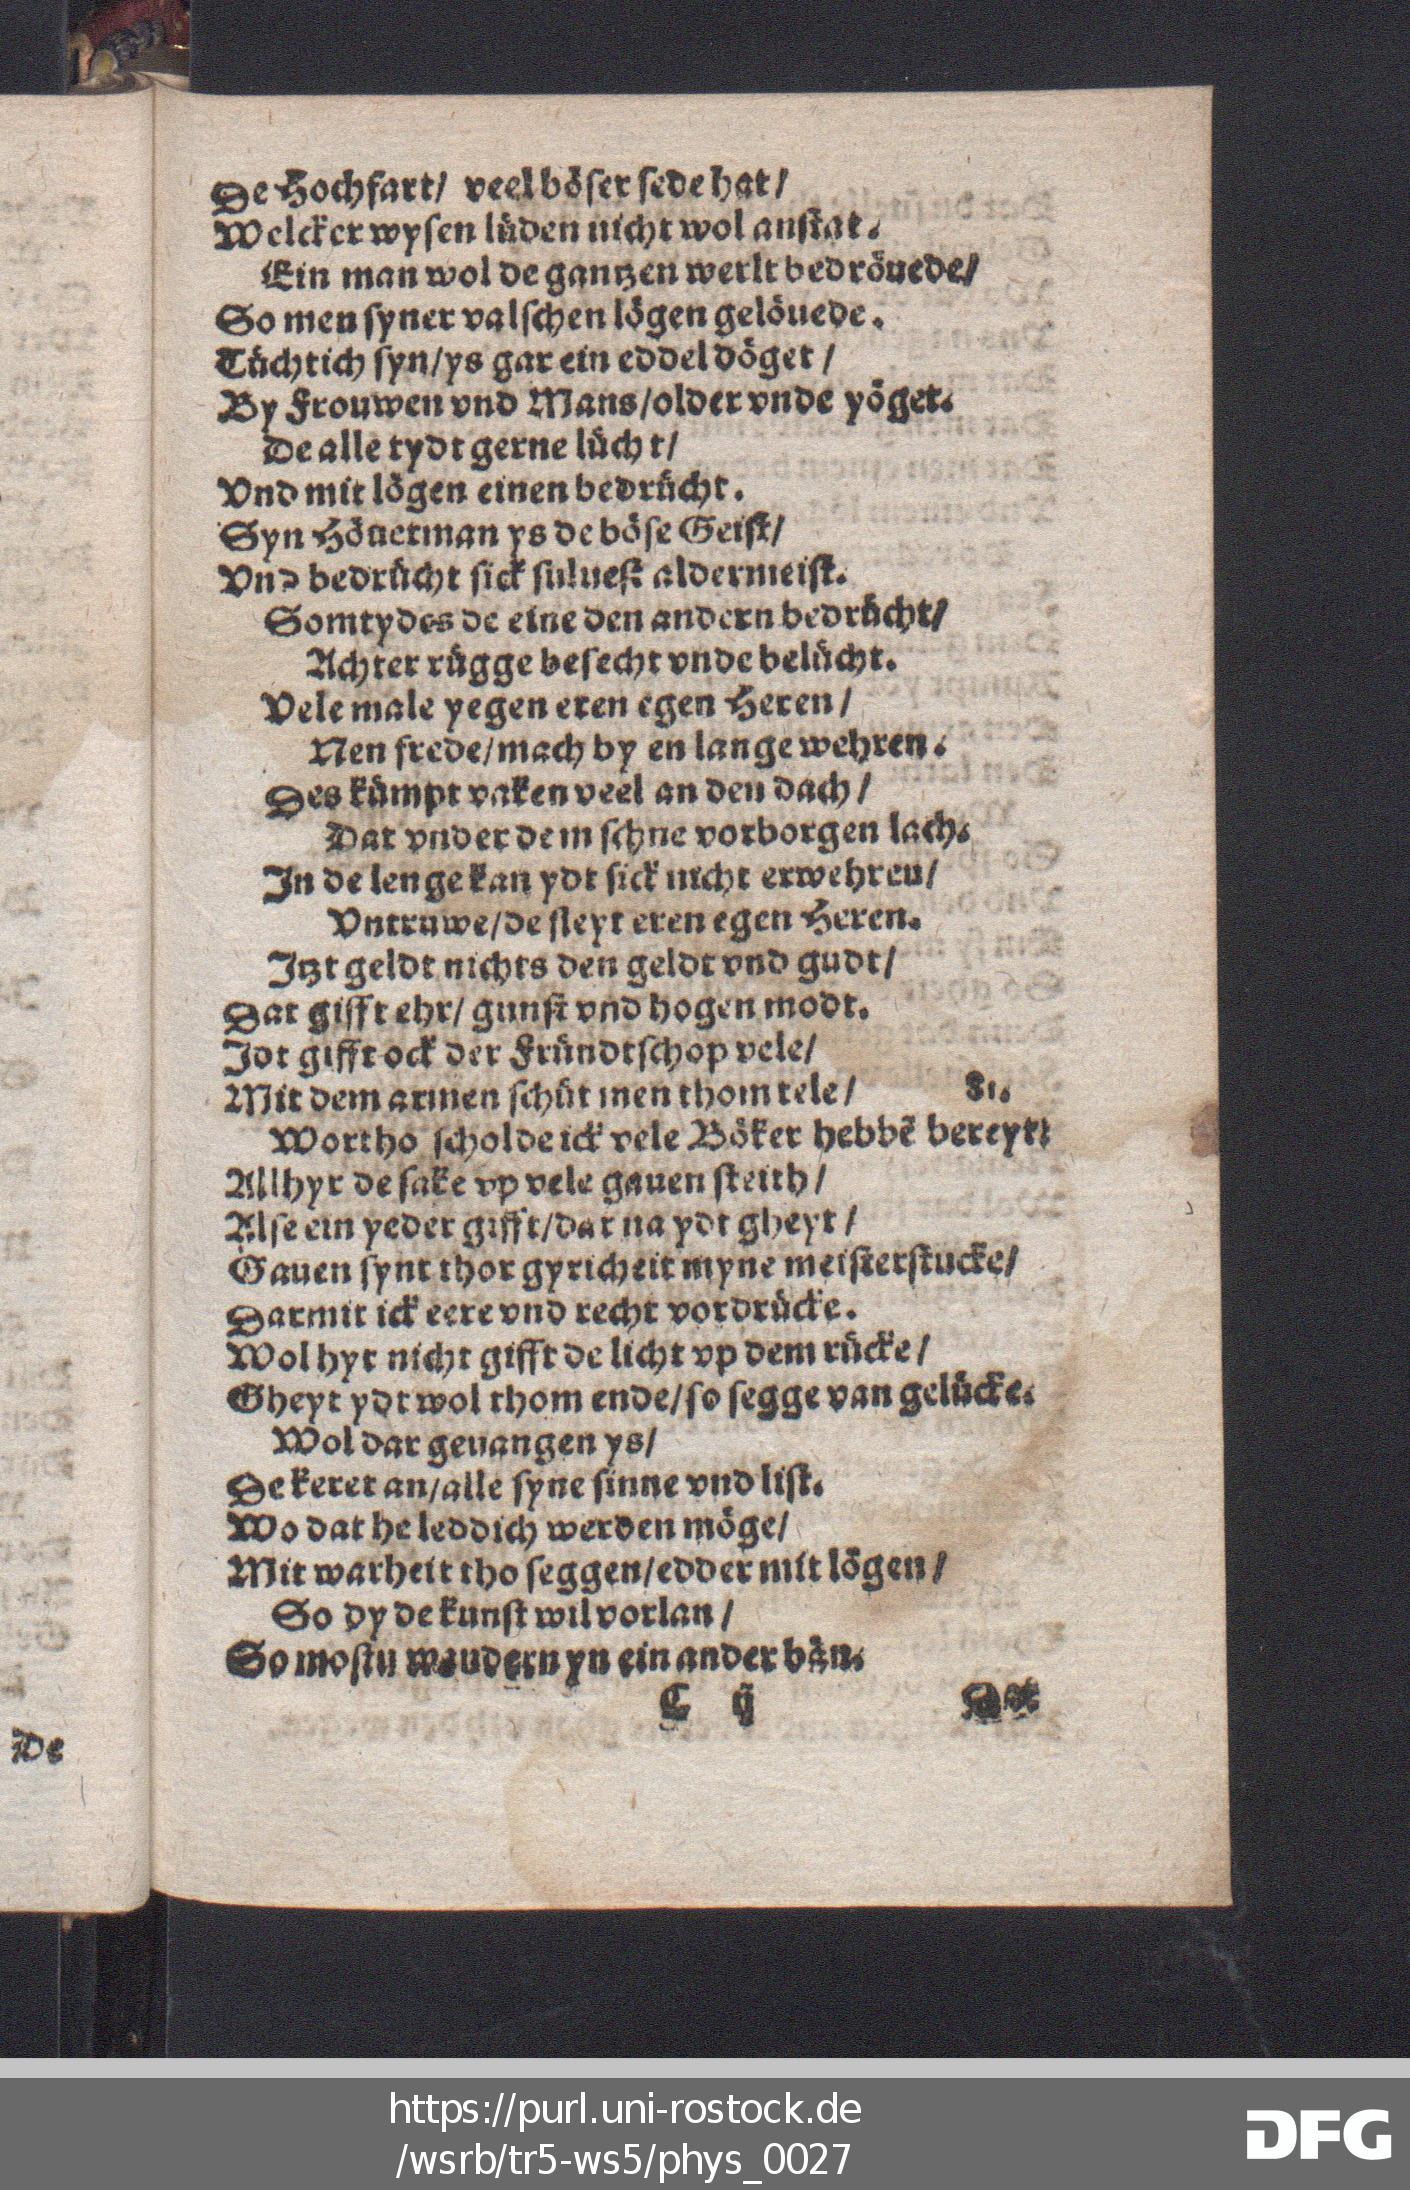 De Hochfart/ veel böser sede hat/
Welcker wysen lüden nicht wol anstat.
Ein man wol de gantzen werlt bedröuede/
So men syner valschen lögen gelöuede.
Tüchtich syn/ys gar ein eddel döget /
By Frouwen vnd Mans/older vnde yöget.
De alle tydt gerne lücht/
Vnd mit lögen einen bedrücht.
Syn Höuetman ys de böse Geist/
Vnd bedrücht sick suluest aldermeist.
Somtydes de eine den andern bedrücht/
Achter rügge besecht vnde belücht.
Vele male yegen eren egen Heren/
Nen frede/mach by en lange wehren.
Des kümpt vaken veel an den dach/
Dat vnder dem schne vorborgen lach.
In de lenge kan ydt sick nicht erwehren/
Vntruwe/de sleyt eren egen Heren.
Jtzt geldt nichts den geldt vnd gudt/
Dat gifft ehr/ gunst vnd hogen modt.
Jdt gifft ock der Fründtschop vele/
Mit dem armen schüt men thom tele/ 31.
Wortho scholde ick vele Böker hebbē bereyt:
Allhyr de sake vp vele gauen steith/
Alse ein yeder gifft/dat na ydt gheyt/
Gauen synt thor gyricheit myne meisterstucke/
Darmit ick eere vnd recht vordrücke.
Wol hyr nicht gifft de licht vp dem rücke/
Gheyt ydt wol thom ende/so segge van gelücke.
Wol dar geuangen ys/
De keret an/alle syne sinne vnd list.
Wo dat he leddich werden möge/
Mit warheit tho seggen/edder mit lögen/
So dy de kunst wil vorlan/
So mostu wandern yn ein ander bän.
C ij
De
https://purl.uni-rostock.de
/wsrb/tr5-ws5/phys_0027
DFG